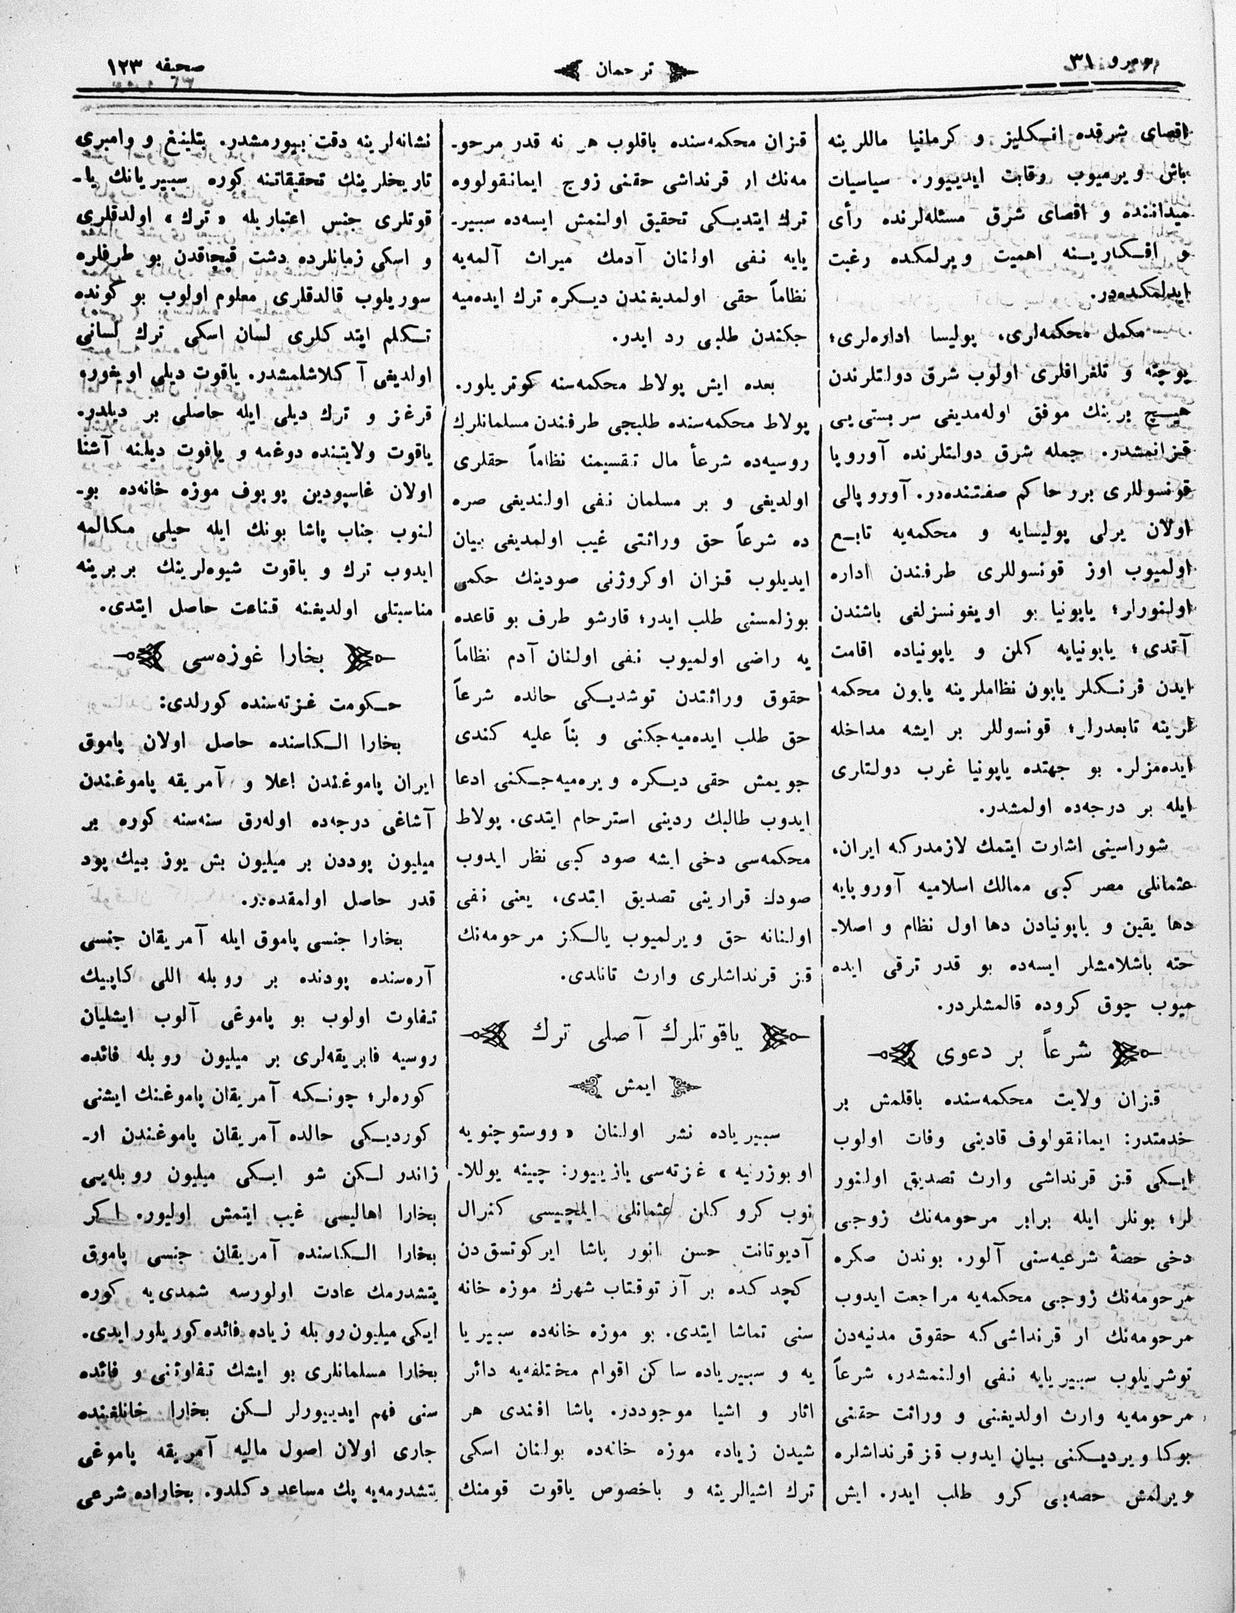 نومرو ٣١
ترجمان
صحيفه ١٢٣
اقصای شرقده انكليز و كرمانيا ماللرينه
باش ويرميوب رقابت ايدييور. سياسيات
ميداننده و اقصای شرق مسئله‌لرنده رأی
و افكارينه اهميت ويرلمكده رغبت
ايدلمكده‌در.
مكمل محكمه‌لری، پوليسا اداره‌لری؛
پوچته و تلغرافلری اولوب شرق دولتلرندن
هيچ برينك موفق اوله‌مديغی سربستی‌يی
قزانمشدر. جمله شرق دولتلرنده آوروپا
قونسوللری برر حاكم صفتنده‌در. آوروپالی
اولان يرلی پوليسايه و محكمه‌يه تابع
اولميوب اوز قونسوللری طرفندن اداره
اولنورلر؛ ياپونيا بو اويغونسزلغی باشندن
آتدی؛ ياپونيايه كلن و ياپونياده اقامت
ايدن فرنكلر ياپون نظاملرينه ياپون محكمه
لرينه تابعدرلر؛ قونسوللر بر ايشه مداخله
ايده‌مزلر. بو جهتده ياپونيا غرب دولتلری
ايله بر درجه‌ده اولمشدر.
شوراسينی اشارت ايتمك لازمدركه ايران،
عثمانلی مصر كبی ممالك اسلاميه آوروپايه
دها يقين و ياپونيادن دها اول نظام و اصلا-
حته باشلامشلر ايسه‌ده بو قدر ترقی ايده
ميوب چوق كروده قالمشلردر.
شرعاً بر دعوی
قزان ولايت محكمه‌سنده باقلمش بر
خدمتدر: ايمانقولوف قادينی وفات اولوب
ايكی قز قرنداشی وارث تصديق اولنور
لر؛ بونلر ايله برابر مرحومه‌نك زوجی
دخی حصۀ شرعيه‌سنی آلور. بوندن صكره
مرحومه‌نك زوجی محكمه‌يه مراجعت ايدوب
مرحومه‌نك ار قرنداشی‌كه حقوق مدنيه‌دن
توشريلوب سبيريايه نفی اولنمشدر، شرعاً
مرحومه‌يه وارث اولديغنی و وراثت حقنی
بوكا ويرديكنی بيان ايدوب قز قرنداشلره
ويرلمش حصه‌يی كرو طلب ايدر. ايش
قزان محكمه‌سنده باقلوب هر نه قدر مرحو-
مه‌نك ار قرنداشی حقنی زوج ايمانقولووه
ترك ايتديكی تحقيق اولنمش ايسه‌ده سبير-
يايه نفی اولنان آدمك ميراث آلمه‌يه
نظاماً حقی اولمديغندن ديكره ترك ايده‌ميه
جكندن طلبی رد ايدر.
بعده ايش پولاط محكمه‌سنه كوتريلور.
پولاط محكمه‌سنده طلبجی طرفندن مسلمانلرك
روسيه‌ده شرعاً مال تقسيمنه نظاماً حقلری
اولديغی و بر مسلمان نفی اولنديغی صره
ده شرعاً حق وراثتی غيب اولمديغی بيان
ايديلوب قزان اوكروژنی صودينك حكمی
بوزلمسنی طلب ايدر؛ قارشو طرف بو قاعده
يه راضی اولميوب نفی اولنان آدم نظاماً
حقوق وراثتدن توشديكی حالده شرعاً
حق طلب ايده‌ميه‌جكنی و بناً عليه كندی
جويمش حقی ديكره ويره‌ميه‌جكنی ادعا
ايدوب طالبك ردينی استرحام ايتدی. پولاط
محكمه‌سی دخی ايشه صود كبی نظر ايدوب
صودك قرارينی تصديق ايتدی، يعنی نفی
اولنانه حق ويرلميوب يالكز مرحومه‌نك
قز قرنداشلری وارث تانلدی.
ياقوتلرك آصلی ترك
ايمش
سبيرياده نشر اولنان «ووستوچنويه
اوبوزرنيه» غزته‌سی يازييور: چينه يوللا-
نوب كرو كلن عثمانلی ايلچيسی كنرال
آديوتانت حسن انور پاشا ايركوتسق‌دن
كچدكده بر آز توقتاب شهرك موزه خانه
سنی تماشا ايتدی. بو موزه خانه‌ده سبيريا
يه و سبيرياده ساكن اقوام مختلفه‌يه دائر
اثار و اشيا موجوددر. پاشا افندی هر
شيدن زياده موزه خانه‌ده بولنان اسكی
ترك اشيالرينه و باخصوص ياقوت قومنك
نشانه‌لرينه دقت بيورمشدر. بتلينغ و وامبری
تاريخلرينك تحقيقاتنه كوره سبيريانك يا-
قوتلری جنس اعتباريله «ترك» اولدقلری
و اسكی زمانلرده دشت قپچاقدن بو طرفلره
سوريلوب قالدقلری معلوم اولوب بو كونده
تكلم ايتدكلری لسان اسكی ترك لسانی
اولديغی آكلاشلمشدر. ياقوت ديلی اويغوره
قرغز و ترك ديلی ايله حاصلی بر ديلدر.
ياقوت ولايتنده دوغمه و ياقوت ديلنه آشنا
اولان غاسپودين پوپوف موزه خانه‌ده بو-
لنوب جناب پاشا بونك ايله خيلی مكالمه
ايدوب ترك و ياقوت شيوه‌لرينك بربرينه
مناسبتلی اولديغنه قناعت حاصل ايتدی.
بخارا غوزه‌سی
حكومت غزته‌سنده كورلدی:
بخارا الكاسنده حاصل اولان پاموق
ايران پاموغندن اعلا و آمريقه پاموغندن
آشاغی درجه‌ده اوله‌رق سنه‌سنه كوره بر
ميليون پوددن بر ميليون بش يوز بيك پود
قدر حاصل اولمقده‌در.
بخارا جنسی پاموق ايله آمريقان جنسی
آره‌سنده پودنده بر روبله اللی كاپيك
تفاوت اولوب بو پاموغی آلوب ايشليان
روسيه فابريقه‌لری بر ميليون روبله فائده
كوره‌لر؛ چونكه آمريقان پاموغنك ايشنی
كورديكی حالده آمريقان پاموغندن ار-
زاندر لكن شو ايكی ميليون روبله‌يی
بخارا اهاليسی غيب ايتمش اوليور. اكر
بخارا الكاسنده آمريقان جنسی پاموق
يتشدرمك عادت اولورسه شمدی‌يه كوره
ايكی ميليون روبله زياده فائده كوريلور ايدی.
بخارا مسلمانلری بو ايشك تفاوتنی و فائده
سنی فهم ايدييورلر لكن بخارا خانلغنده
جاری اولان اصول ماليه آمريقه پاموغی
يتشدرمه‌يه پك مساعد دكلدو. بخاراده شرعی